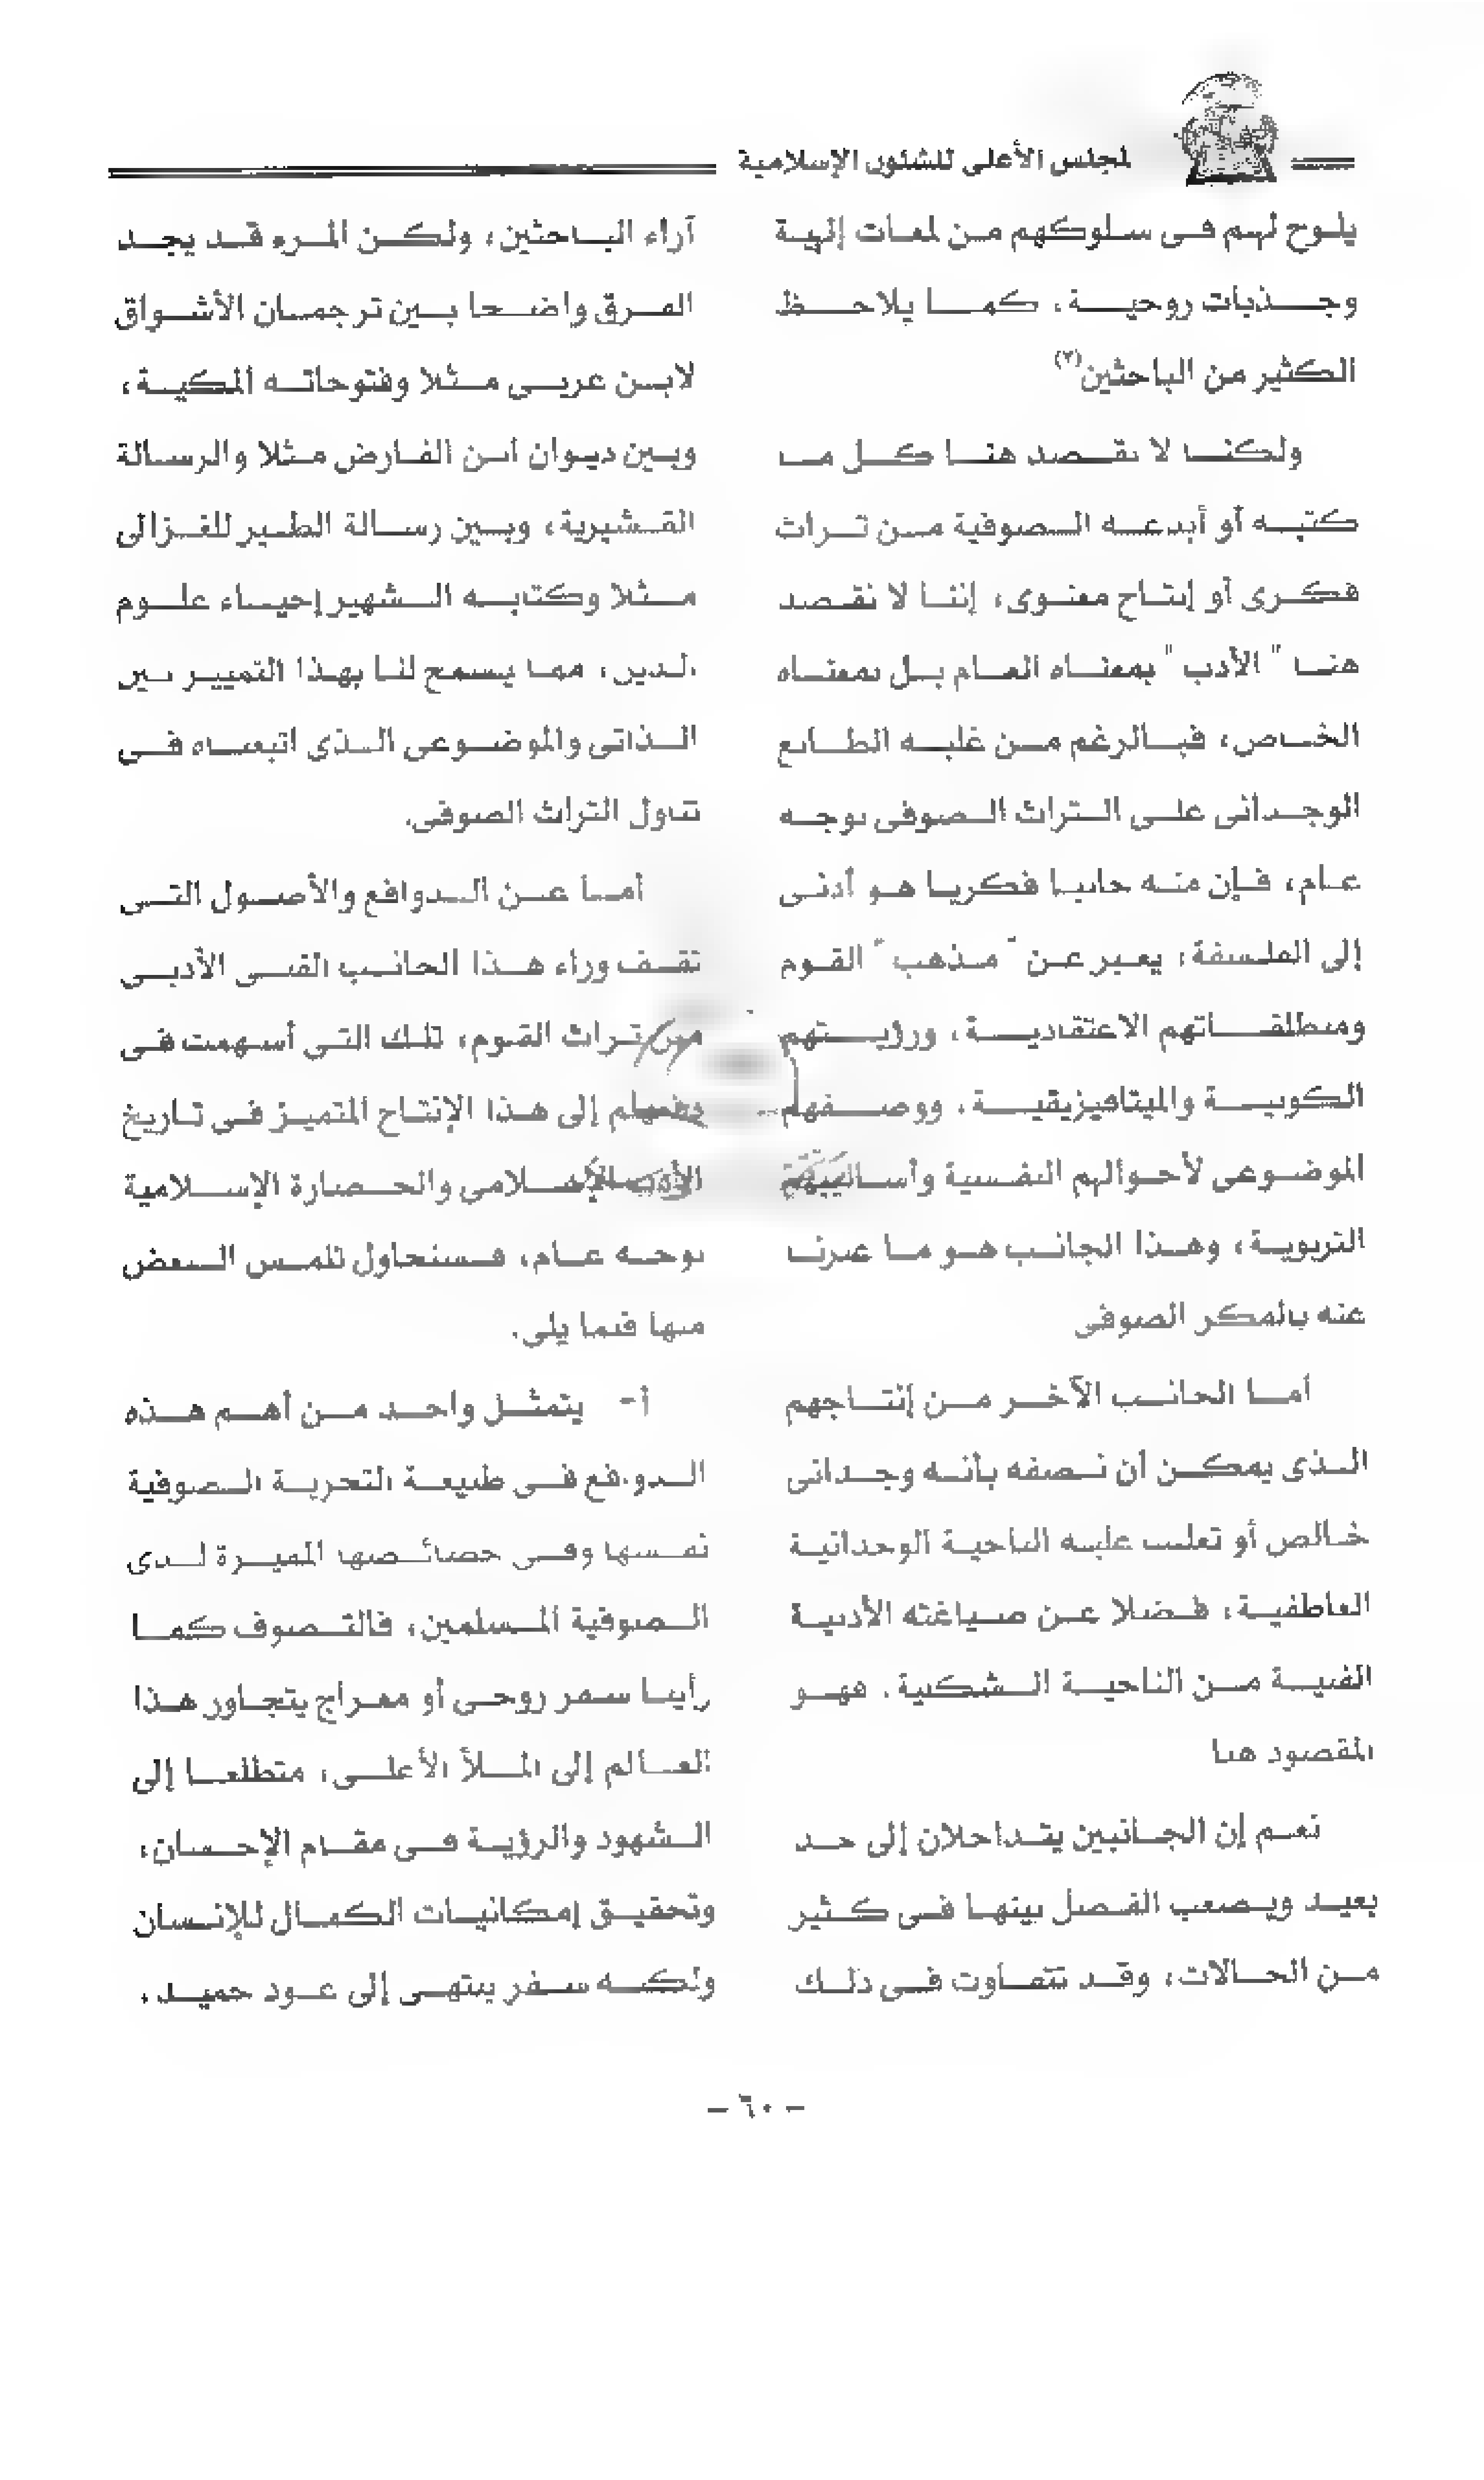 لمجلس الأعلى للشئون الإسلامية
يلوح لهم فى سلوكهم من لمعات إلهية
وجذبات روحية، كما يلاحظ
الكثير من الباحثين(٢)
ولكننا لا نقصد هنا كل ما
كتبه أو أبدعه الصوفية من تراث
فكرى أو إنتاج معنوى، إننا لا نقصد
هنا " الأدب " بمعناه العام بل بمعناه
الخاص، فبالرغم من غلبه الطابع
الوجدانى على التراث الصوفى بوجه
عام، فإن منه جانبا فكريا هو أدنى
إلى الفلسفة، يعبر عن " مذهب " القوم
ومنطلقاتهم الاعتقادية، ورؤيتهم
الكونية والميتافيزيقية، ووصفهم
الموضوعى لأحوالهم النفسية وأساليبهم
التربوية، وهذا الجانب هو ما عبرنا
عنه بالفكر الصوفى
أما الجانب الآخر من إنتاجهم
الذى يمكن أن نصفه بأنه وجدانى
خالص أو تغلب عليه الناحية الوجدانية
العاطفية، فضلا عن صياغته الأدبية
الفنية من الناحية الشكلية، فهو
المقصود هنا
نعم إن الجانبين يتداخلان إلى حد
بعيد ويصعب الفصل بينها فى كثير
من الحالات، وقد تتفاوت فى ذلك
آراء الباحثين، ولكن المرء قد يجد
الفرق واضحا بين ترجمان الأشواق
لابن عربى مثلا وفتوحاته المكية،
وبين ديوان ابن الفارض مثلا والرسالة
القشيرية، وبين رسالة الطير للغزالى
مثلا وكتابه الشهير إحياء علوم
الدين، مما يسمح لنا بهذا التمييز بين
الذاتى والموضوعى الذى اتبعناه فى
تناول التراث الصوفى.
أما عن الدوافع والأصول التى
تقف وراء هذا الجانب الفنى الأدبى
من تراث القوم، تلك التى أسهمت فى
إلى هذا الإنتاج المتميز فى تاريخ
الأدب الإسلامى والحضارة الإسلامية
بوجه عام، فسنحاول تلمس البعض
منها فيما يلى.
أ- يتمثل واحد من أهم هذه
الدوافع فى طبيعة التجربة الصوفية
نفسها وفى خصائصها المميزة لدى
الصوفية المسلمين، فالتصوف كما
رأينا سفر روحى أو معراج يتجاوز هذا
العالم إلى الملأ الأعلى، متطلعا إلى
الشهود والرؤية فى مقام الإحسان،
وتحقيق إمكانيات الكمال للإنسان
ولكنه سفر ينتهى إلى عود حميد،
- ٦٠ -